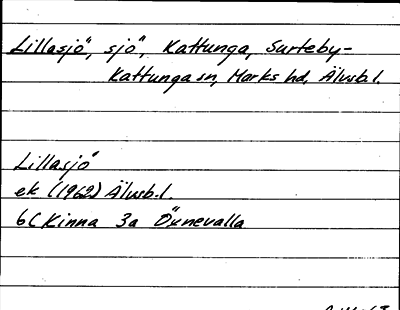 Lillasjö, sjö, Kattunga, Surteby-
Kattunga sn, Marks hd, Älvsb.l.
Lillasjö
ek (1962) Älvsb.l.
6C Kinna 3a Öxnevalla